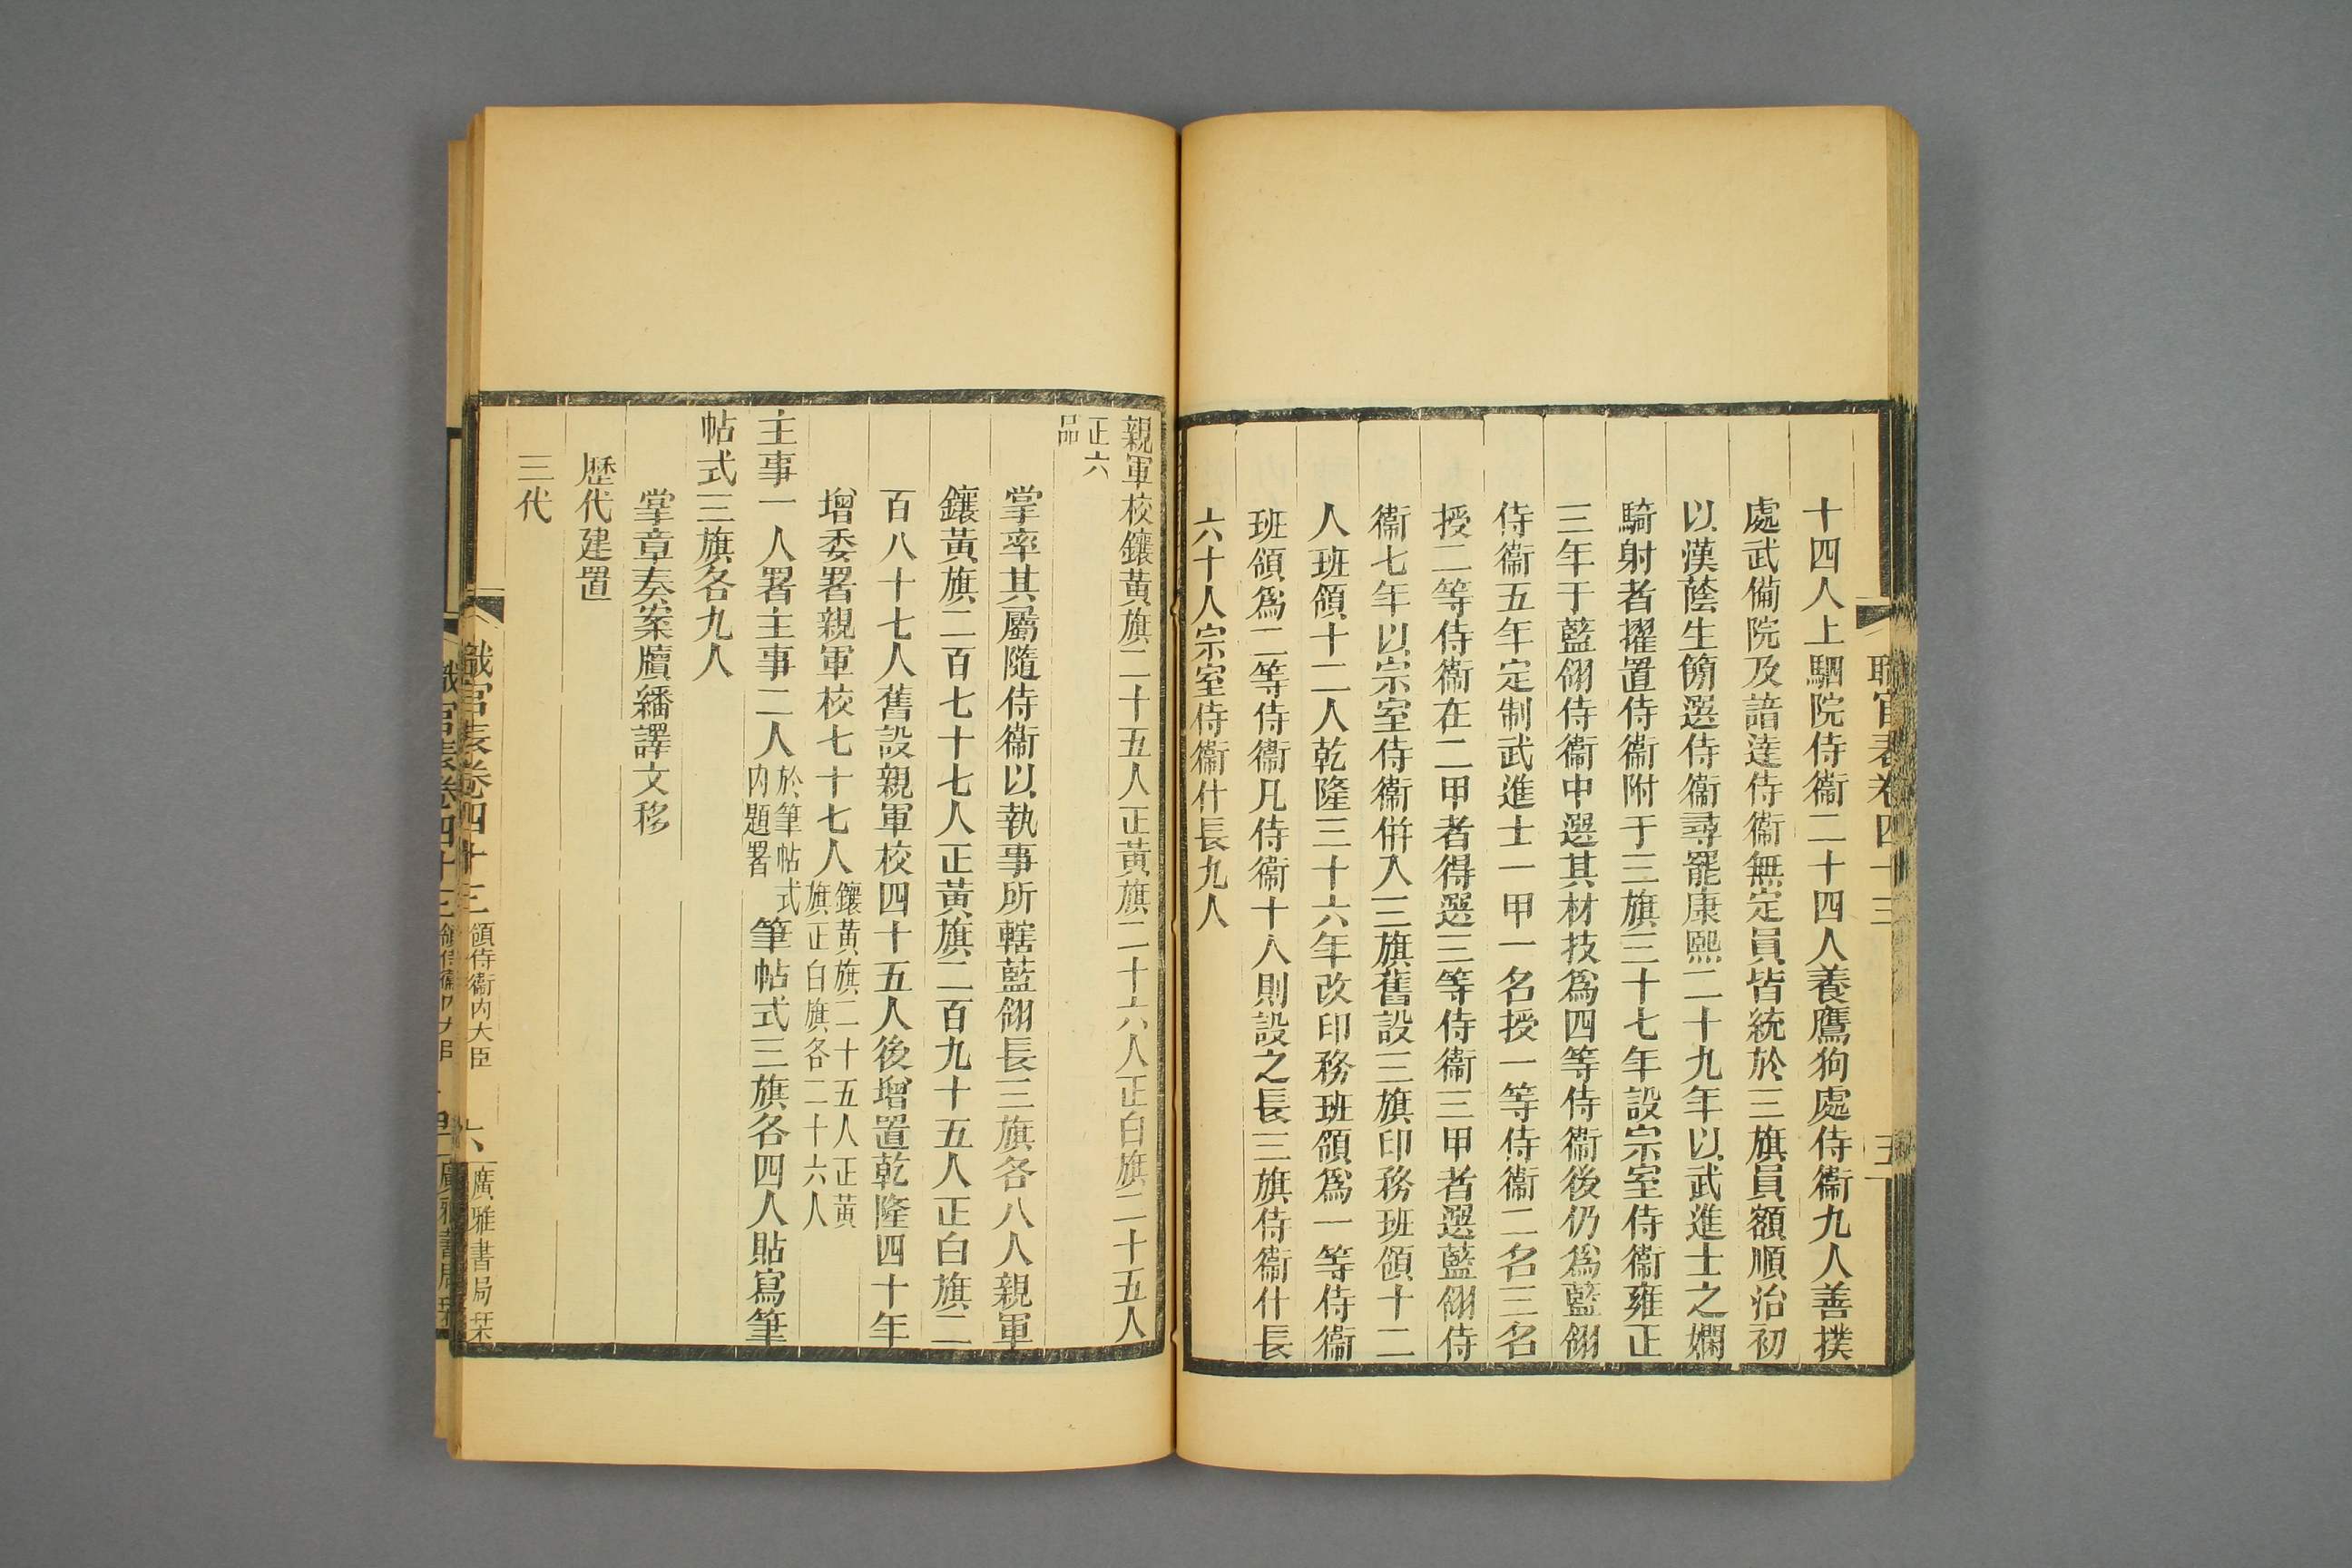 職官表卷四十三
五
十四人上駟院侍衞二十四人養鷹狗處侍衞九人善撲
處武備院及諳達侍衞無定員皆統於三旗員額順治初
以漢蔭生簡選侍衞尋罷康熙二十九年以武進士之嫻
騎射者擢置侍衞附于三旗三十七年設宗室侍衞雍正
三年于藍翎侍衞中選其材技爲四等侍衞後仍爲藍翎
侍衞五年定制武進士一甲一名授一等侍衞二名三名
授二等侍衞在二甲者得選三等侍衞三甲者選藍翎侍
衞七年以宗室侍衞併入三旗舊設三旗印務班領十二
人班領十二人乾隆三十六年改印務班領爲一等侍衞
班領爲二等侍衞凡侍衞十人則設之長三旗侍衞什長
六十人宗室侍衞什長九人
親軍校鑲黃旗二十五人正黃旗二十六人正白旗二十五人
正六
品
掌率其屬隨侍衞以執事所轄藍翎長三旗各八人親軍
鑲黃旗二百七十七人正黃旗二百九十五人正白旗二
百八十七人舊設親軍校四十五人後增置乾隆四十年
增委署親軍校七十七人鑲黃旗二十五人正黃
旗正白旗各二十六人
主事一人署主事二人於筆帖式
内題署筆帖式三旗各四人貼寫筆
帖式三旗各九人
掌章奏案牘繙譯文移
歷代建置
三代
職官表卷四十三 領侍衞内大臣
六
廣雅書局栞